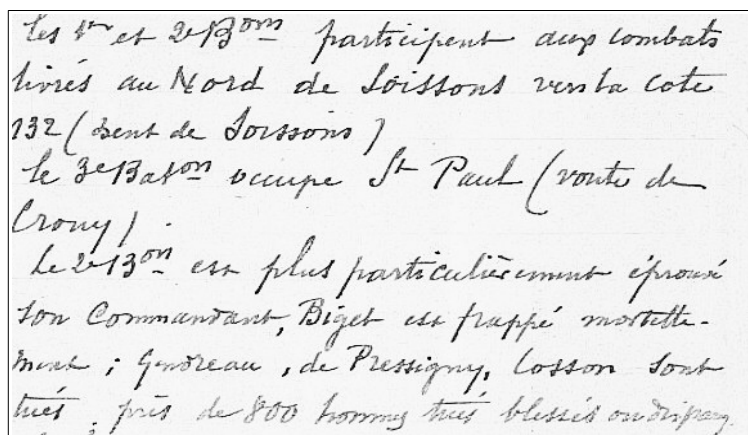 Les 1er et 2e Bons participent aux combats
livrés au Nord de Soissons vers la cote
132 (dent de Soissons)
le 3e Baton occupe St Paul (route de
Crouy).
Le 2e Bon est plus particulièrement éprouvé
son Commandant, Biget est frappé mortelle-
ment ; Gendreau, de Pressigny, Cosson sont
tués, près de 800 hommes tués blessés ou disparus